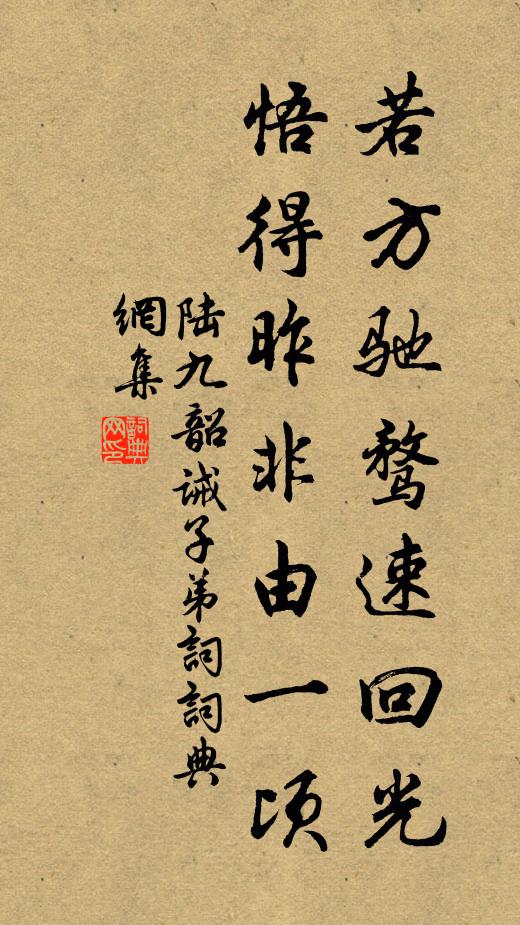 若方驰鹜速回光
悟得昨非由一顷
陆九韶诫子弟詞詞典
網集
詞典
网印